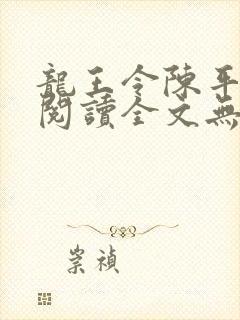 龍王令陳平
閱讀全文無
崇禎